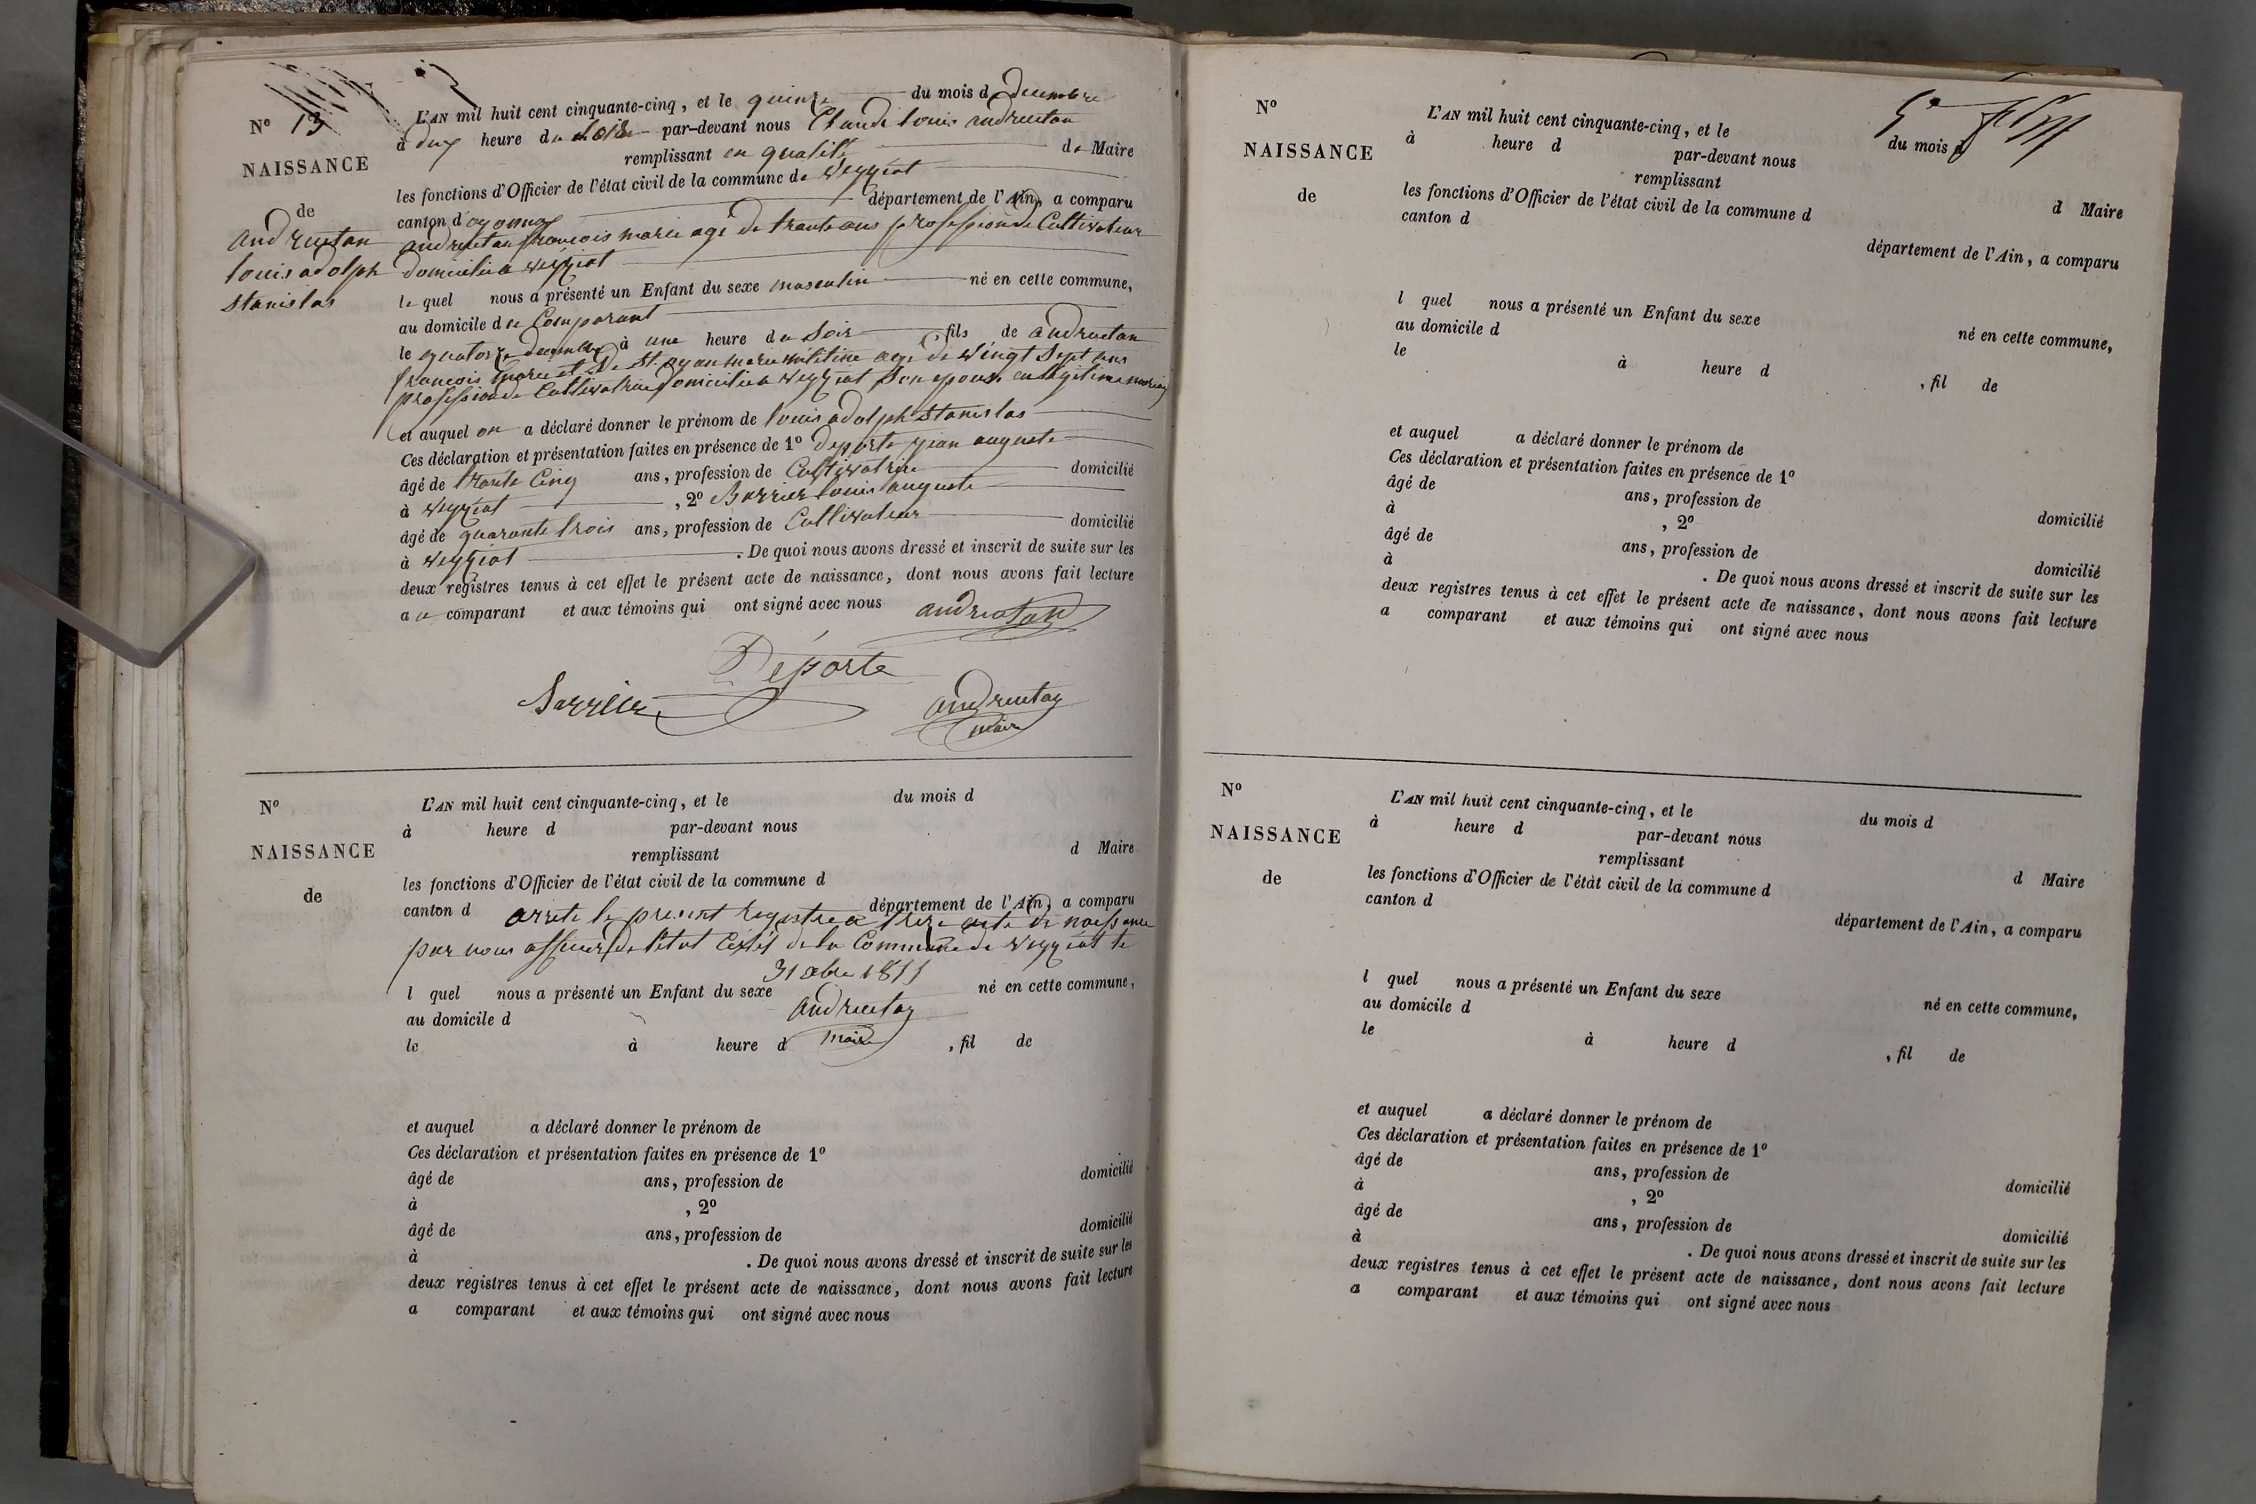 Nº 13
NAISSANCE
de
andruetan
louis adolph
stanislas
L'AN mil huit cent cinquante-cinq, et le quinze du mois de decembre
à dux heure du soir par-devant nous Claude louis andruetan
remplissant en qualité de Maire
les fonctions d'Officier de l'état civil de la commune de veyziat
canton d'oyonnax département de l'Ain, a comparu
andruetan francois marie agé de trante ans profession de Cultivateur
domicilié a veyziat
le quel nous a présenté un Enfant du sexe masculin né en cette commune,
au domicile du Comparant
le quatorze decembre à une heure du Soir fils de andruetan
francois marie et de St. oyan marie agé de vingt Sept ans
profession de Cultivatrice domiciliée a veyziat Son epouse en légitime mariag
et auquel on a déclaré donner le prénom de louis adolph Stanislas
Ces déclaration et présentation faites en présence de 1º deporte jean auguste
âgé de trante Cinq ans, profession de Cultivatrice domicilié
à veyziat , 2º Barrier louis auguste
âgé de quarante trois ans, profession de Cultivateur domicilié
à veyziat . De quoi nous avons dressé et inscrit de suite sur les
deux registres tenus à cet effet le présent acte de naissance, dont nous avons fait lecture
au comparant et aux témoins qui ont signé avec nous andruetan
Déporte
Barrier
andruetan
maire
Nº
NAISSANCE
de
L'AN mil huit cent cinquante-cinq, et le du mois d
à heure d par-devant nous
remplissant d Maire
les fonctions d'Officier de l'état civil de la commune d
canton d département de l'Ain, a comparu
arrete le present registre a treze acte de naissance
par nous officier de l'etat Civil de la Commune de veyziat le
31 xbre 1855
l quel nous a présenté un Enfant du sexe né en cette commune,
andruetan
au domicile d
maire
le à heure d , fil de
et auquel a déclaré donner le prénom de
Ces déclaration et présentation faites en présence de 1º
âgé de ans, profession de domicilié
à , 2º
âgé de ans, profession de domicilié
à . De quoi nous avons dressé et inscrit de suite sur les
deux registres tenus à cet effet le présent acte de naissance, dont nous avons fait lecture
a comparant et aux témoins qui ont signé avec nous
Nº
NAISSANCE
de
L'AN mil huit cent cinquante-cinq, et le du mois d
à heure d par-devant nous
remplissant d Maire
les fonctions d'Officier de l'état civil de la commune d
canton d département de l'Ain, a comparu
l quel nous a présenté un Enfant du sexe né en cette commune,
au domicile d
le à heure d , fil de
et auquel a déclaré donner le prénom de
Ces déclaration et présentation faites en présence de 1º
âgé de ans, profession de domicilié
à , 2º
âgé de ans, profession de domicilié
à . De quoi nous avons dressé et inscrit de suite sur les
deux registres tenus à cet effet le présent acte de naissance, dont nous avons fait lecture
a comparant et aux témoins qui ont signé avec nous
Nº
NAISSANCE
de
L'AN mil huit cent cinquante-cinq, et le du mois d
à heure d par-devant nous
remplissant d Maire
les fonctions d'Officier de l'état civil de la commune d
canton d département de l'Ain, a comparu
l quel nous a présenté un Enfant du sexe né en cette commune,
au domicile d
le à heure d , fil de
et auquel a déclaré donner le prénom de
Ces déclaration et présentation faites en présence de 1º
âgé de ans, profession de domicilié
à , 2º
âgé de ans, profession de domicilié
à . De quoi nous avons dressé et inscrit de suite sur les
deux registres tenus à cet effet le présent acte de naissance, dont nous avons fait lecture
a comparant et aux témoins qui ont signé avec nous